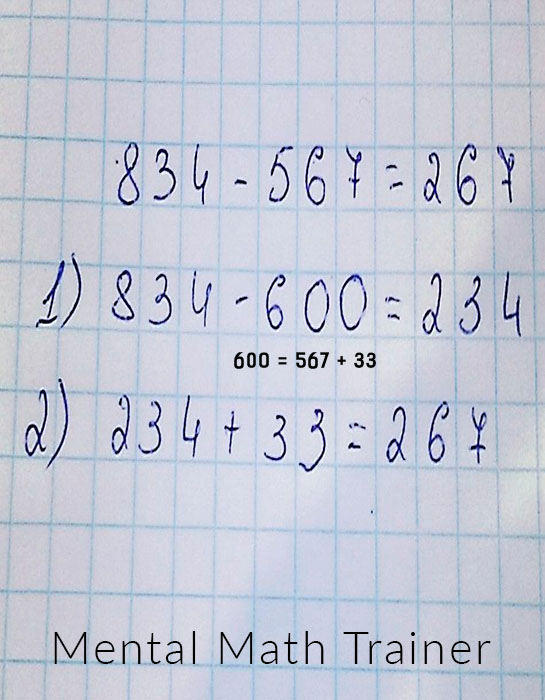 834 - 567 = 267
1) 834 - 600 = 234
600 = 567 + 33
2) 234 + 33 = 267
Mental Math Trainer